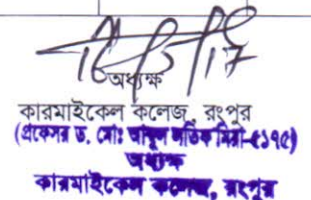 অধ্যক্ষ
কারমাইকেল কলেজ, রংপুর
(প্রফেসর ড. মোঃ আব্দুল লতিফ মিয়া-৫১৭৫)
অধ্যক্ষ
কারমাইকেল কলেজ, রংপুর